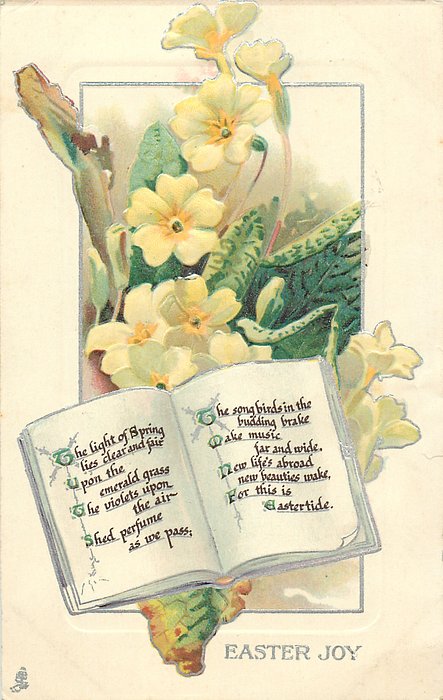 The light of Spring
lies clear and fair
Upon the
emerald grass
The violets upon
the air-
Shed perfume
as we pass;
The song birds in the
budding brake
Make music
far and wide,
New life's abroad
new beauties wake,
For this is
Eastertide.
EASTER JOY